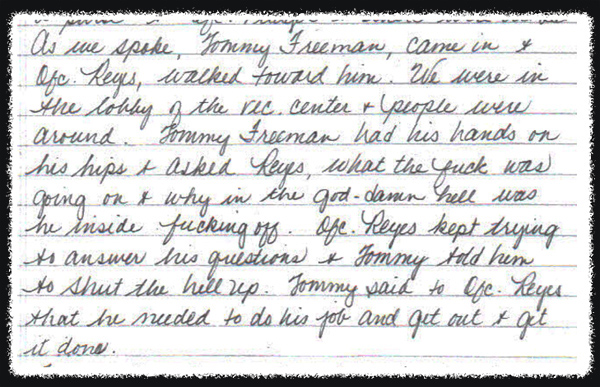 As we spoke, Tommy Freeman, came in &
Ofc. Reyes, walked toward him. We were in
the lobby of the rec. center & people were
around. Tommy Freeman had his hands on
his hips & asked Reys, what the fuck was
going on & why in the god-damn hell was
he inside fucking off. Ofc. Reyes kept trying
to answer his questions & Tommy told him
to shut the hell up. Tommy said to Ofc. Reyes
that he needed to do his job and get out & get
it done.